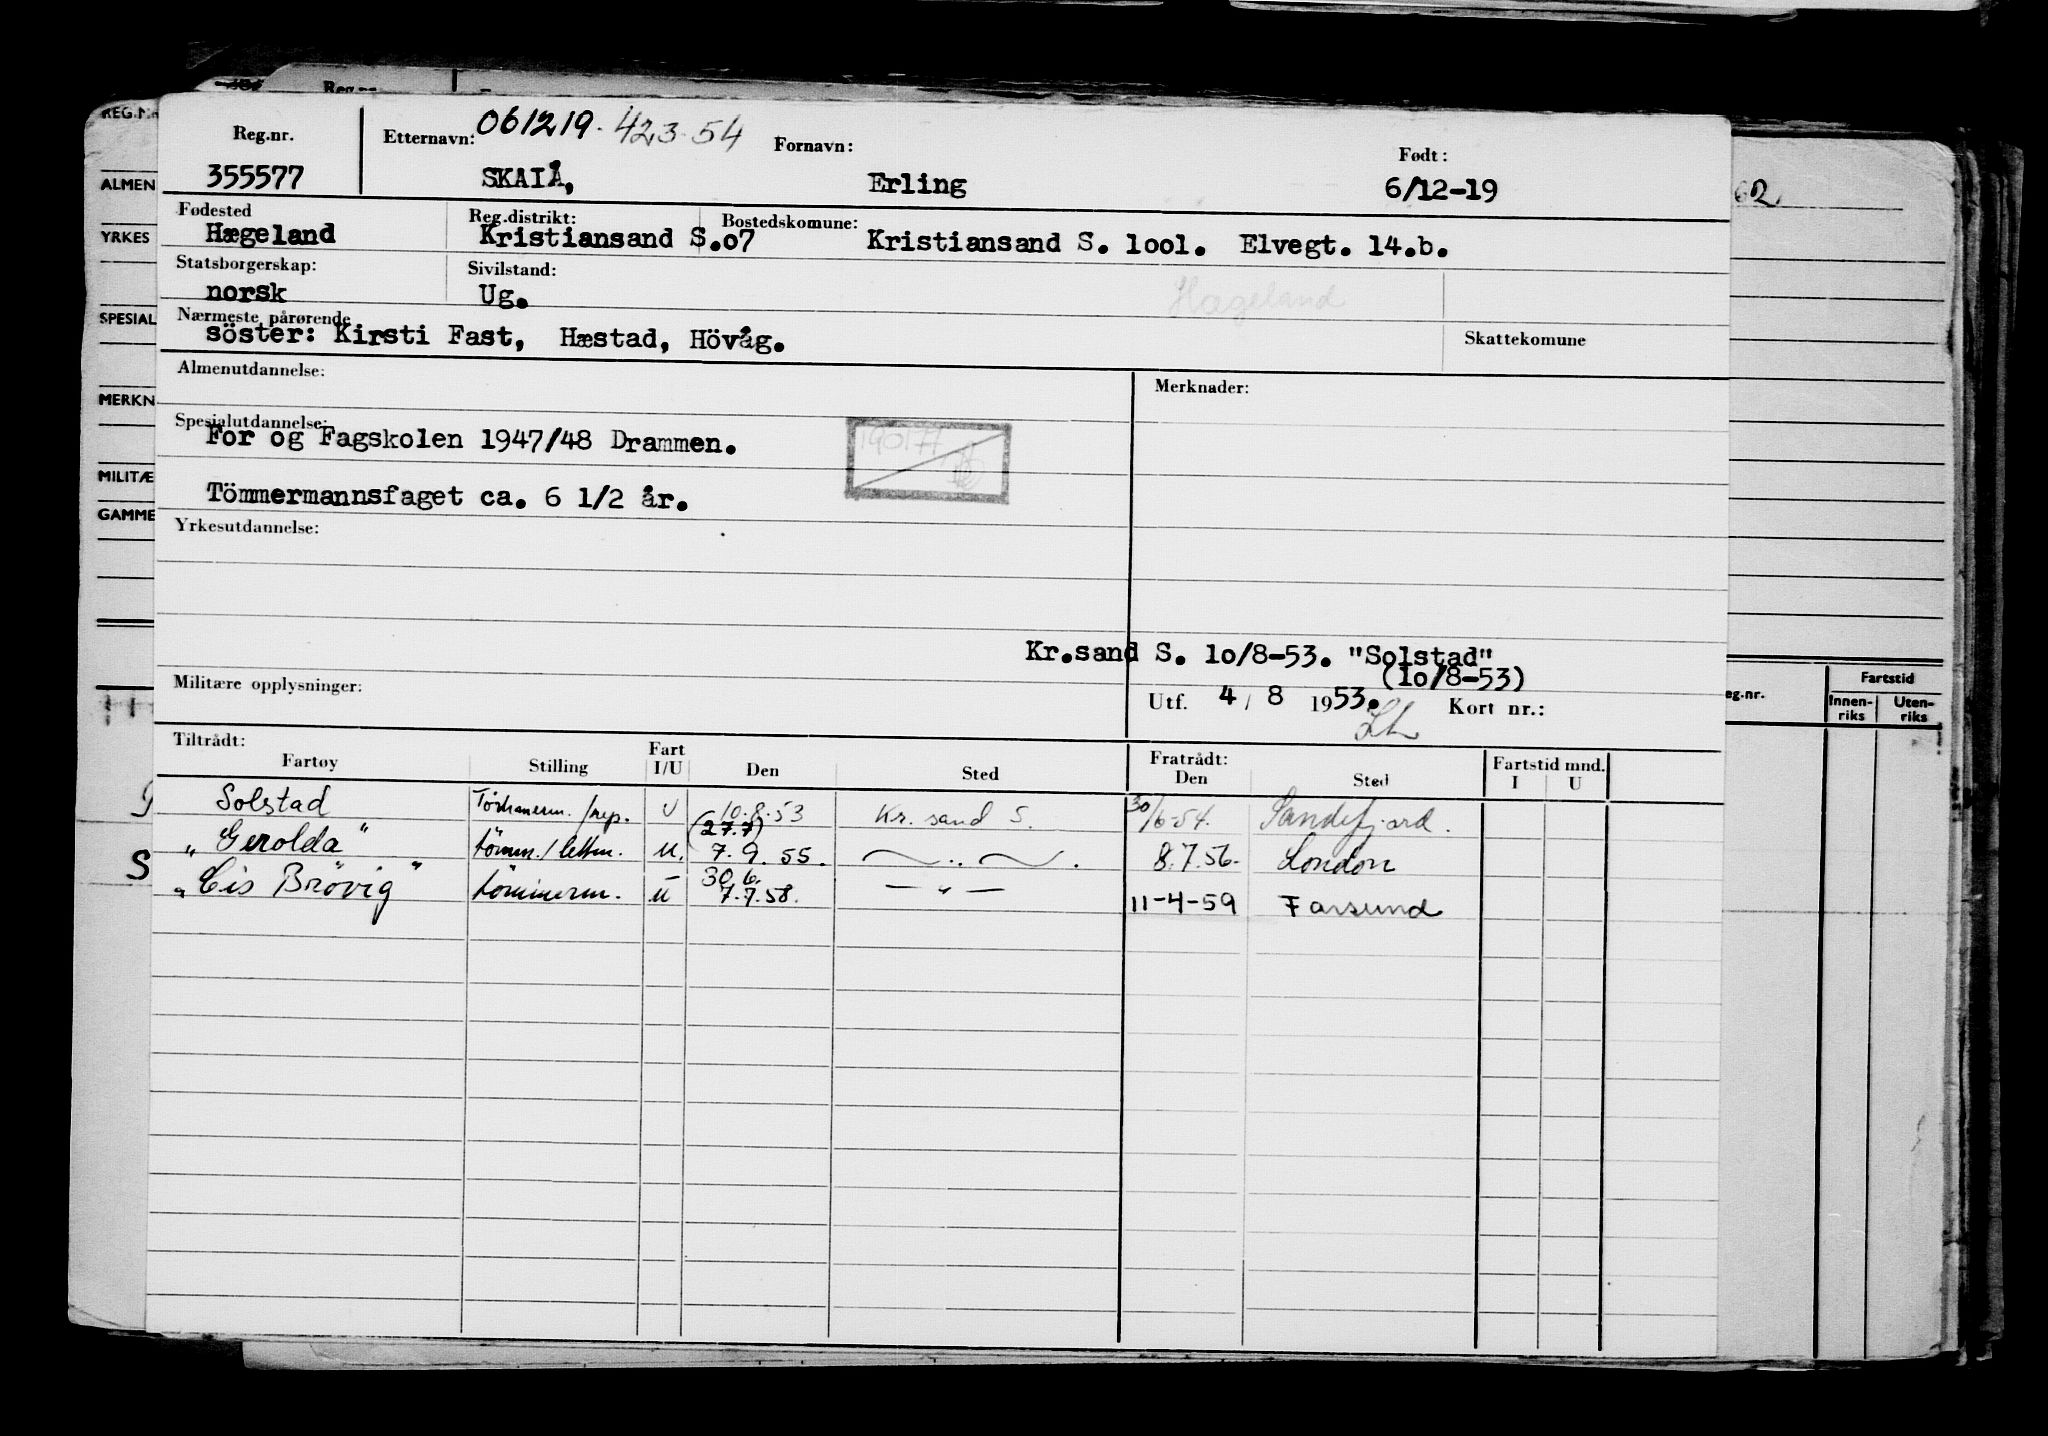 REG.N
Reg.nr.
ALMEN
YRKES
SPESIAL
MERKN
MILITÆ
GAMME
S
eg.nr.
Fartstid
Innen-
riks
Uten-
riks
Reg.nr. Etternavn: 061219. 423 54 Fornavn: Født:
355577 SKAIÅ, Erling 6/12-19
Fødested Reg.distrikt: Bostedskomune:
Hægeland Kristiansand S.o7 Kristiansand S. lool. Elvegt. 14.b.
Statsborgerskap: Sivilstand:
norsk Ug. Hægeland
Nærmeste pårørende Skattekomune
söster: Kirsti Fast, Hæstad, Hövåg.
Almenutdannelse: Merknader:
Spesialutdannelse:
For og Fagskolen 1947/48 Drammen.
190177
Tömmermannsfaget ca. 6 1/2 år.
Yrkesutdannelse:
Kr.sand S. lo/8-53. "Solstad"
(lo/8-53)
Militære opplysninger: Utf. 4 / 8 1953. Kort nr.:
Tiltrådt: Fratrådt: Fartstid mnd.
Fartøy Stilling Fart I/U Den Sted Den Sted I U
Solstad /rep. U 10.8.53 Kr. sand S. 30/6-54. Sandefjord.
(27.7)
"Gerolda" tömm./lettm. U. 7.9.55. — „ — . 8.7.56. London
30.6.
"Cis Brövig" tömmerm. U 7.7.58. — „ — 11-4-59 Farsund